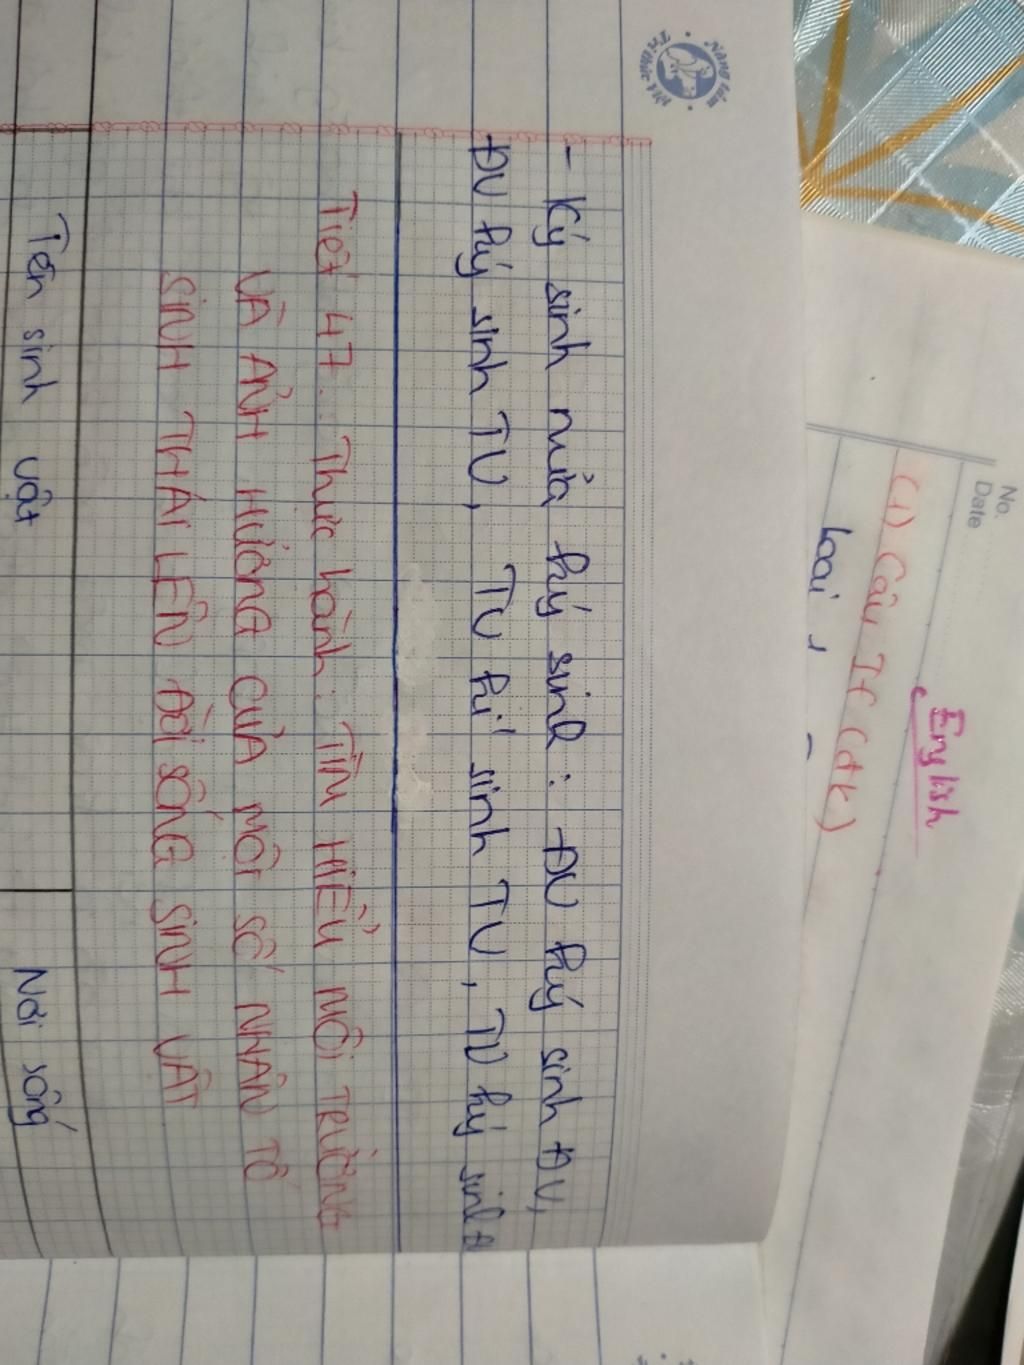 - Ký sinh nửa ký sinh : ĐV ký sinh ĐV,
ĐV ký sinh TV, TV kí sinh TV, TV ký sinh Đ
Tiết 47 : Thực hành : TÌM HIỂU MÔI TRƯỜNG
VÀ ẢNH HƯỞNG CỦA MỘT SỐ NHÂN TỐ
SINH THÁI LÊN ĐỜI SỐNG SINH VẬT
Tên sinh vật
Nơi sống
No.
Date
English
(1) Câu If (đk)
Loại 1